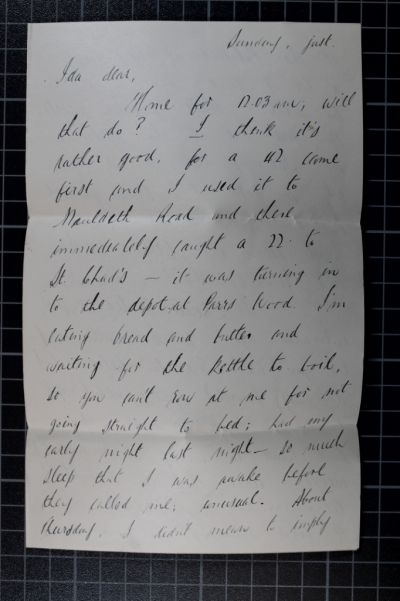 Sunday, just.
Ida dear,
Home for 12.03 am; will
that do? I think it's
rather good, for a 42 came
first and I used it to
Mauldeth Road and there
immediately caught a 22 to
St. Chad's — it was turning in
to the depot at Parrs Wood. I'm
eating bread and butter and
waiting for the kettle to boil,
so you can't row at me for not
going straight to bed; had my
early night last night — so much
sleep that I was awake before
they called me; unusual. About
Thursday, I didn't mean to imply